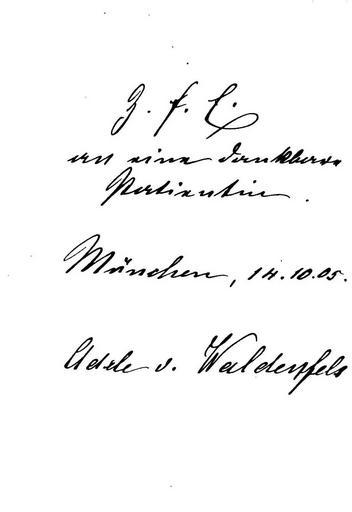 Z. f. E.
an eine dankbare
Patientin.
München, 14.10.05.
Adele v. Waldenfels